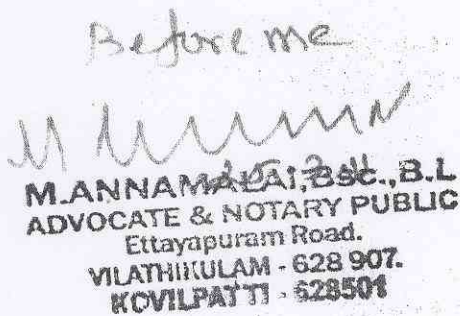 Before me
M.ANNAMALAI, BSC.,B.L
ADVOCATE & NOTARY PUBLIC
Ettayapuram Road.
VILATHIKULAM - 628 907.
KOVILPATTI - 628501